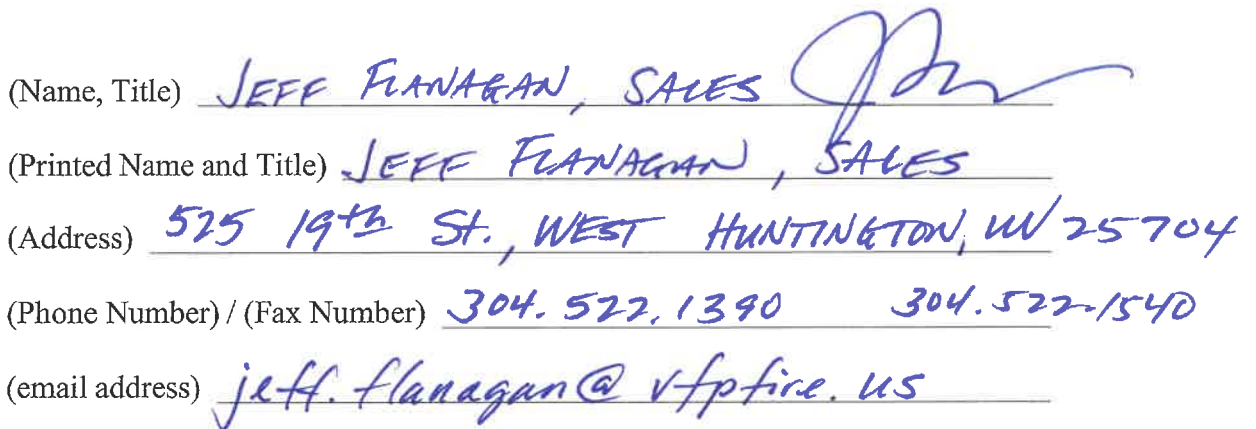 (Name, Title) JEFF FLANAGAN, SALES
(Printed Name and Title) JEFF FLANAGAN, SALES
(Address) 525 19th St., WEST HUNTINGTON, WV 25704
(Phone Number) / (Fax Number) 304.522.1390 304.522-1540
(email address) jeff.flanagan@vfpfire.us